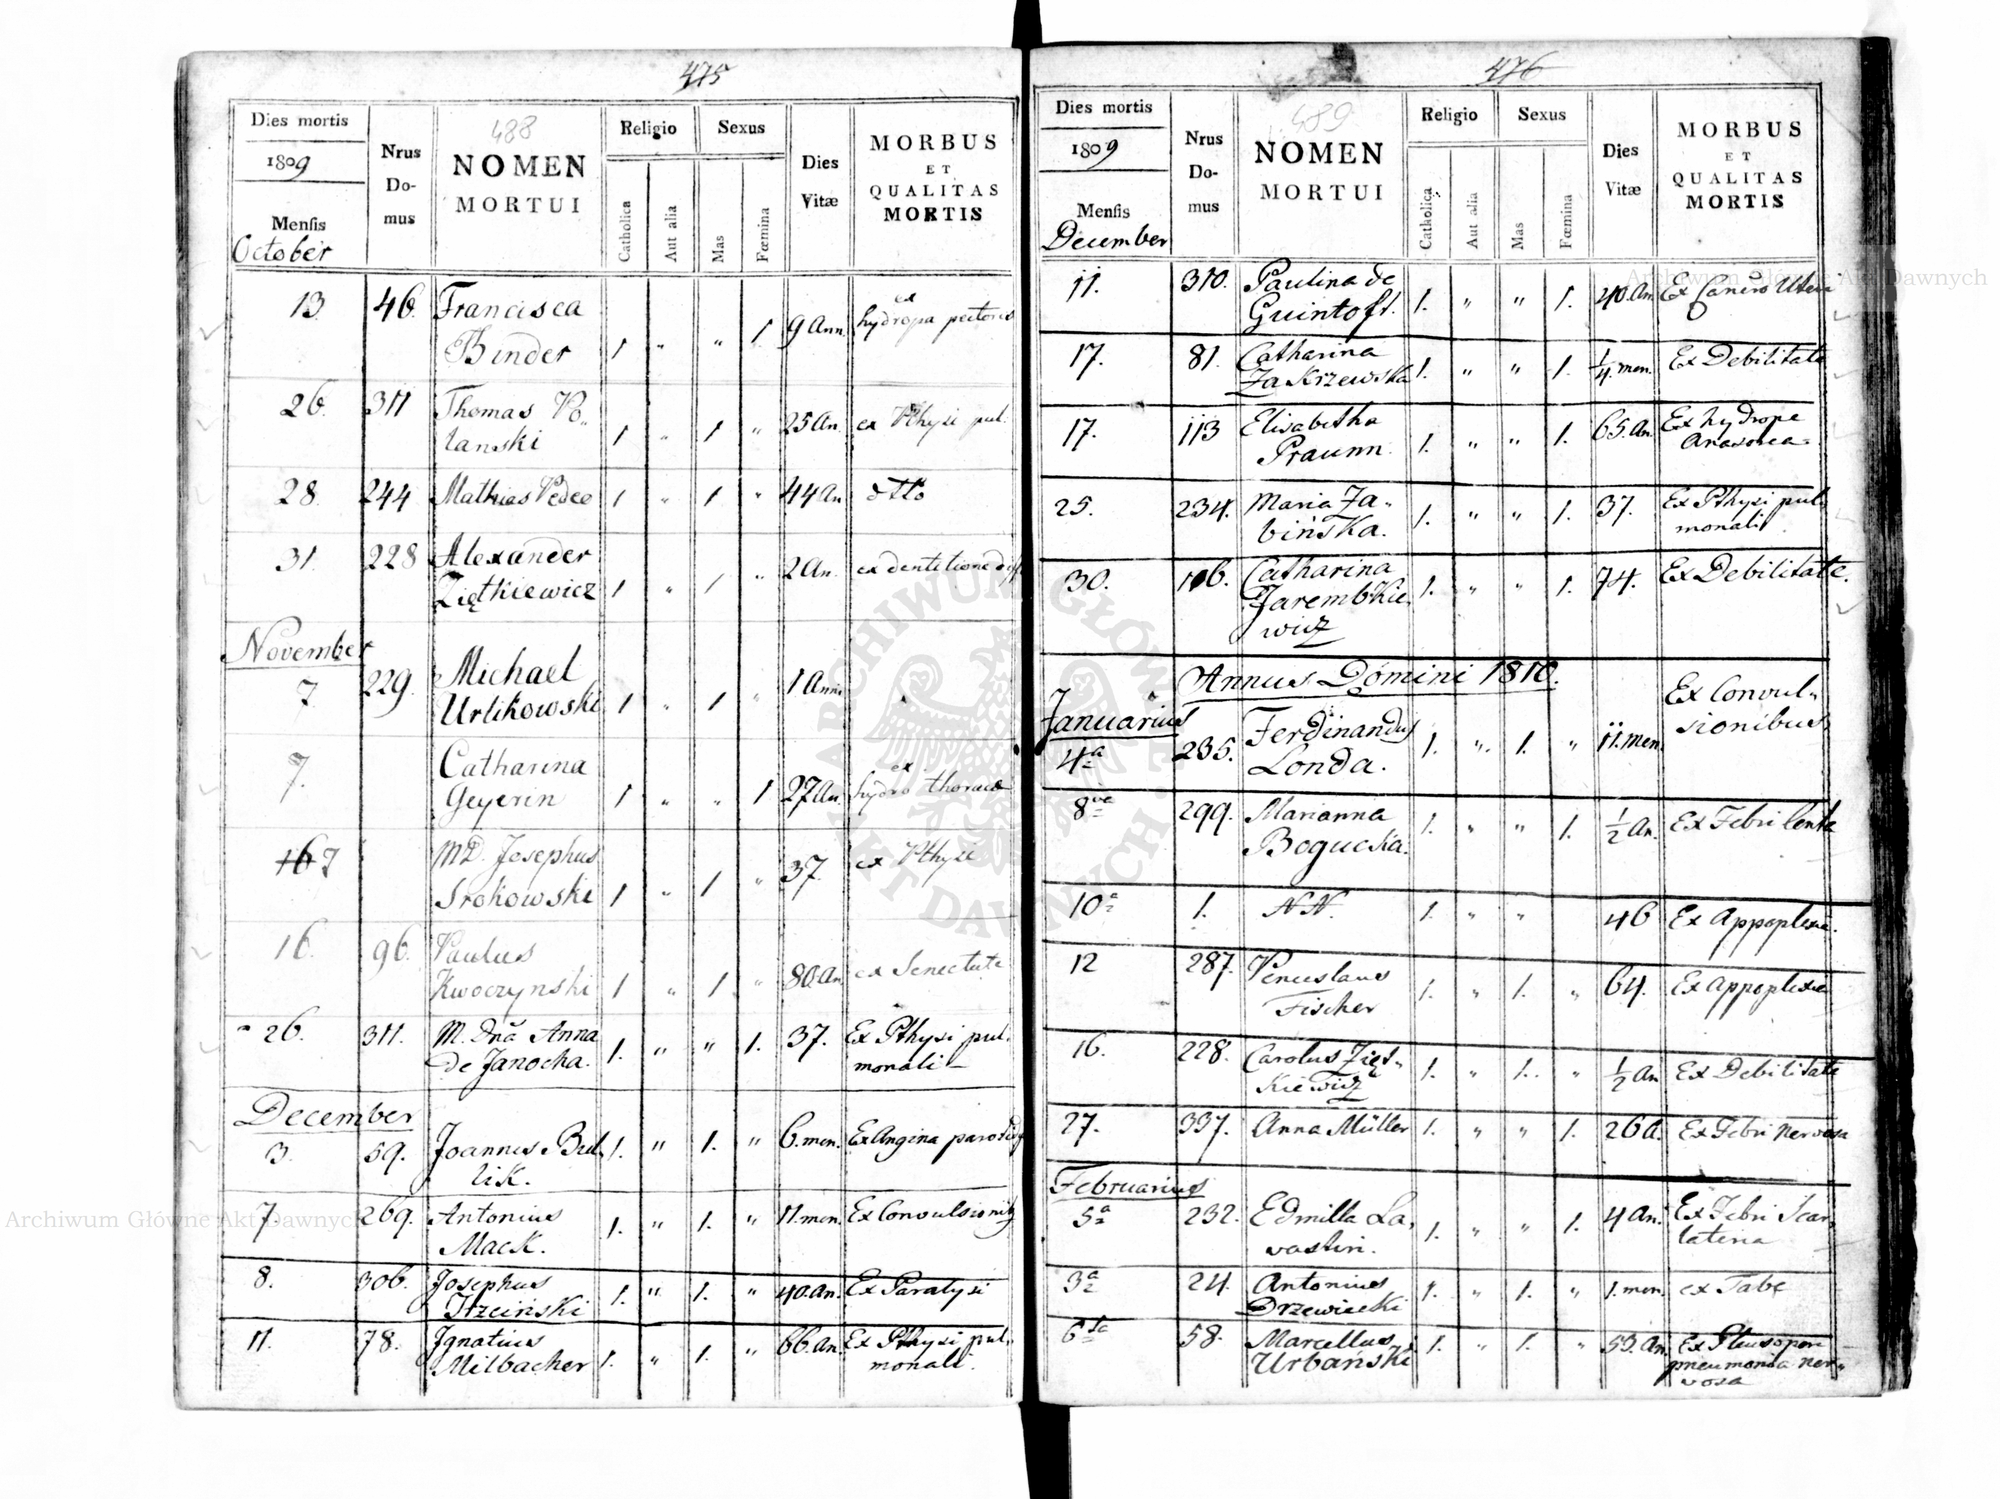 475
Dies mortis
1809
Mensis
October
Nrus
Do-
mus
488
NOMEN
MORTUI
Religio
Catholica
Aut alia
Sexus
Mas
Fœmina
Dies
Vitæ
MORBUS
ET
QUALITAS
MORTIS
13. 46. Francisca ex
Binder 1 " " 1 9 Ann. hydropa pectoris
26. 311 Thomas Po-
lanski 1 " 1 " 25 An. ex Pthysi pul.
28. 244 Mathias Pedee 1 " 1 " 44 An. dtto
31. 228 Alexander
Ziętkiewicz 1 " 1 " 2 An. ex dentitione
November
7 229. Michael
Urlikowski 1 " 1 " 1 Anni "
7. Catharina ex
Geyerin 1 " " 1 27 An. hydro thorace
16 7 MD. Josephus
Srokowski 1 " 1 " 37 ex Pthysi
16. 96. Paulus
Kwoczynski 1 " 1 " 80. An. ex Senectute
26. 311. M. Dña Anna
de Janocha. 1. " " 1. 37. Ex Pthysi pul-
monali
December
3. 59. Joannes Bul-
lik. 1. " 1. " 6. men. Ex Angina
7 269. Antonius
Mack. 1. " 1. " 11. men. Ex Convulsionib
8. 306. Josephus
Trzciński 1. " 1. " 40. An. Ex Paralysi
11. 78. Ignatius
Milbacher 1. " 1. " 66. An. Ex Pthysi pul-
monali.
476
Dies mortis
1809
Mensis
December
Nrus
Do-
mus
489
NOMEN
MORTUI
Religio
Catholica
Aut alia
Sexus
Mas
Fœmina
Dies
Vitæ
MORBUS
ET
QUALITAS
MORTIS
11. 310. Paulina de
Guintofl. 1. " " 1. 40. An. Ex Cancro Uteri
17. 81. Catharina
Zakrzewska 1. " " 1. 1/4. men. Ex Debilitate
17. 113 Elisabetha
Praunn. 1. " " 1. 65. An. Ex hydrope
Anasarca
25. 234. Maria Za-
bińska. 1. " " 1. 37. Ex Pthysi pul-
monali
30. 106. Catharina
Jarembkie-
wicz 1. " " 1. 74. Ex Debilitate.
Annus Domini 1810.
Januarius
4a 235. Ferdinandus
Londa. 1. " 1. " 11. men. Ex Convul-
sionibus
8va 299. Marianna
Bogucka. 1. " " 1. 1/2 An. Ex Febri lenta
10a 1. NN. 1. " " 46 Ex Appoplexia.
12 287. Venceslaus
Fischer 1. " 1. " 64. Ex Appoplexia
16. 228. Carolus Zięt-
kiewicz 1. " 1. " 1/2 An Ex Debilitate
27. 337. Anna Müller 1. " " 1. 26 A. Ex Febri nervosa
Februarius
5a 232. Edmilla La-
vastin. 1. " " 1. 4 An. Ex Febri Scar-
latina
3a 24. Antonius
Drzewiecki 1. " 1. " 1. men. ex Tabe
6ta 58. Marcellus
Urbański 1. " 1. " 53. An.
pneumonia ner-
vosa
Archiwum Główne Akt Dawnych
Archiwum Główne Akt Dawnych
ARCHIWUM GŁÓWNE AKT DAWNYCH